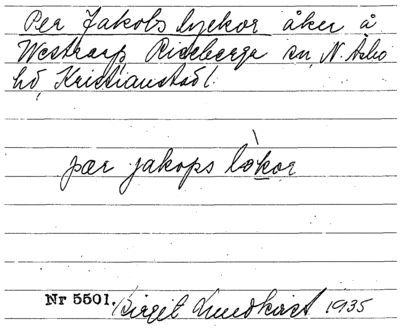 Per Jakobs lyckor åker å
Westrarp, Riseberga sn, N. Åsbo
hd, Kristianstad l.
pær jakops lòkor
Nr 5501. Birgit Lundkvist 1935